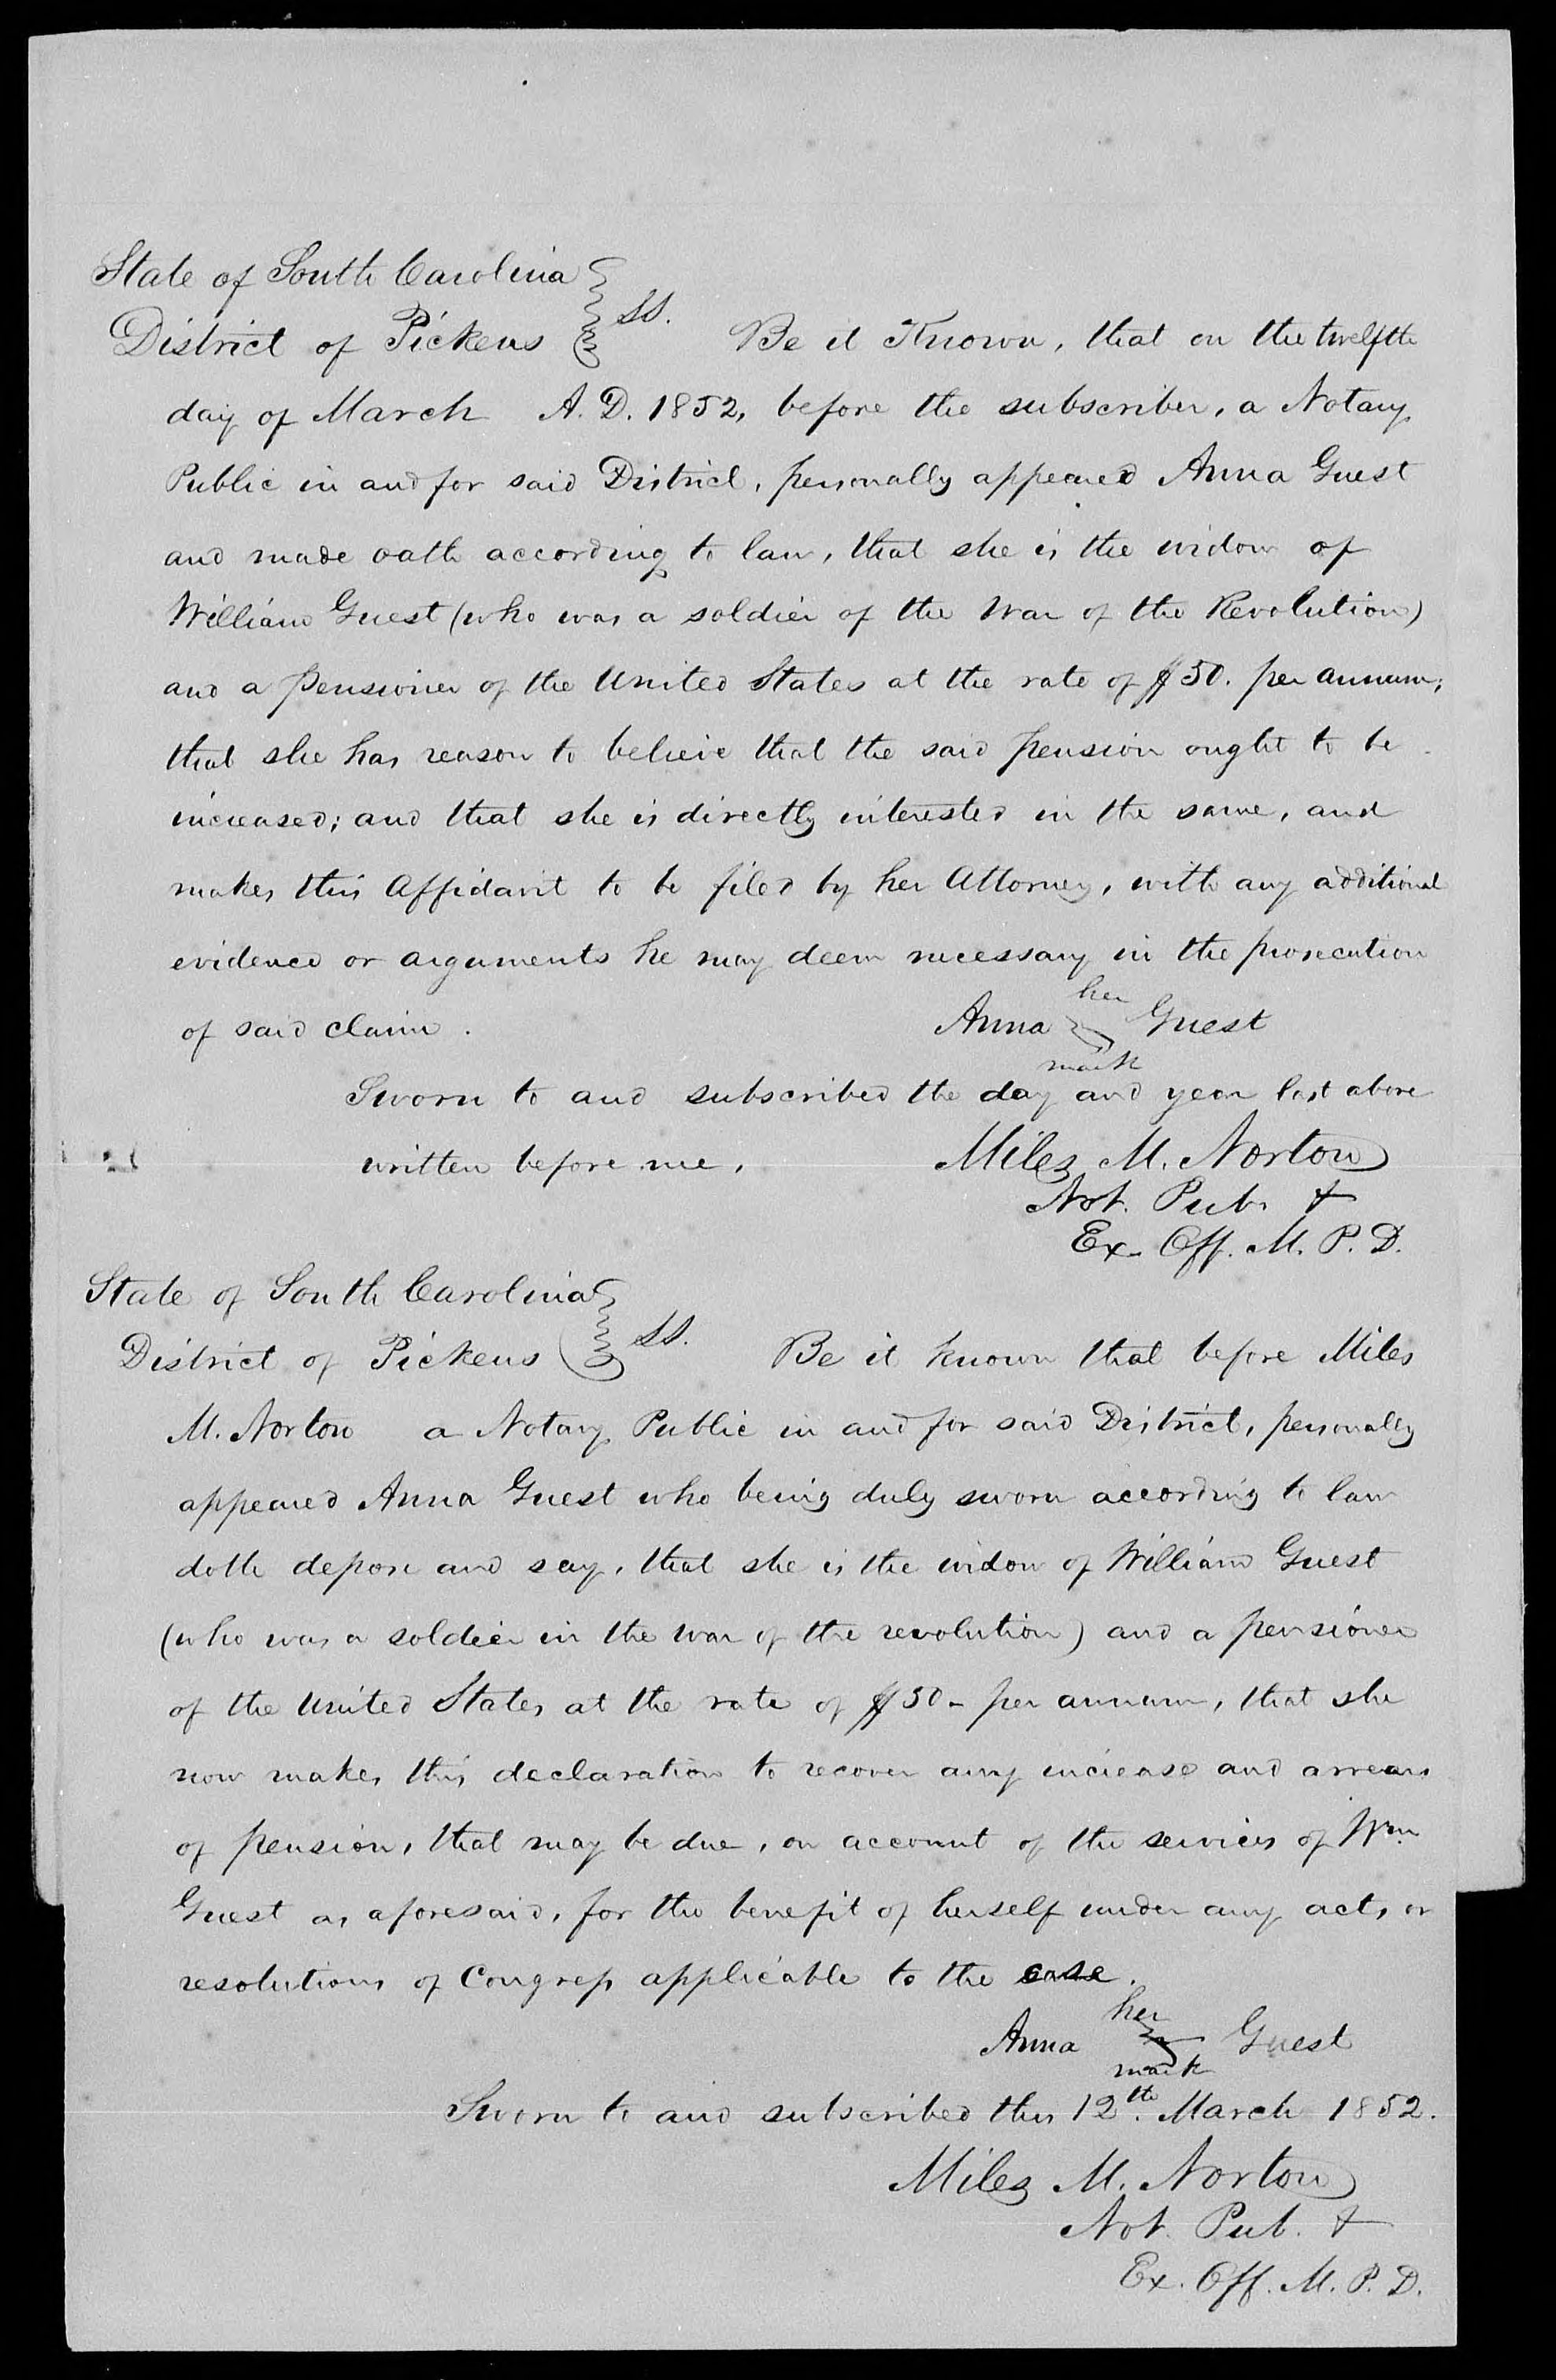 State of South Carolina
District of Pickens } SS. Be it Known, that on the twelfth
day of March A. D. 1852, before the subscriber, a Notary
Public in and for said District, personally appeared Anna Guest
and made oath according to law, that she is the widow of
William Guest (who was a soldier of the War of the Revolution)
and a pensioner of the United States at the rate of $50. per annum;
that she has reason to believe that the said pension ought to be
increased; and that she is directly interested in the same, and
makes this Affidavit to be filed by her Attorney, with any additional
evidence or arguments he may deem necessary in the prosecution
of said claim.
her
Anna Guest
mark
Sworn to and subscribed the day and year last above
written before me,
Miles M. Norton
Not. Pub. &
Ex. Off. M. P. D.
State of South Carolina
District of Pickens } SS. Be it known that before Miles
M. Norton a Notary Public in and for said District, personally
appeared Anna Guest who being duly sworn according to law
doth depose and say, that she is the widow of William Guest
(who was a soldier in the war of the revolution) and a pensioner
of the United States at the rate of $50- per annum, that she
now makes this declaration to recover any increase and arrears
of pension, that may be due, on account of the services of Wm.
Guest as aforesaid, for the benefit of herself under any acts or
resolutions of Congress applicable to the case.
her
Anna Guest
mark
Sworn to and subscribed this 12th. March 1852.
Miles M. Norton
Not. Pub. &
Ex. Off. M. P. D.